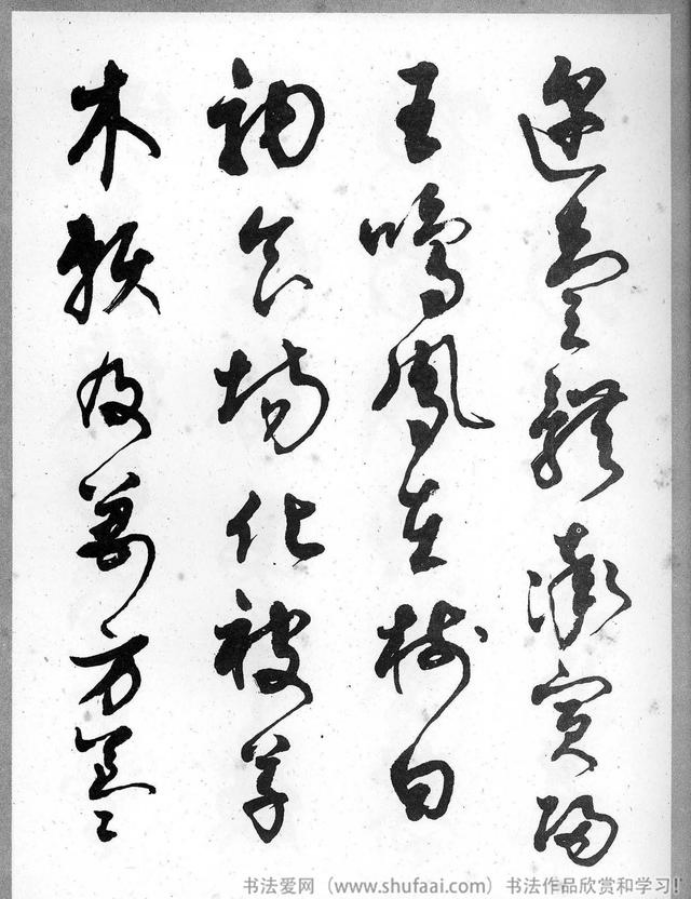 邇壹體率賓歸
王鳴鳳在樹白
駒食場化被草
木賴及萬方蓋
书法爱网（www.shufaai.com）书法作品欣赏和学习！